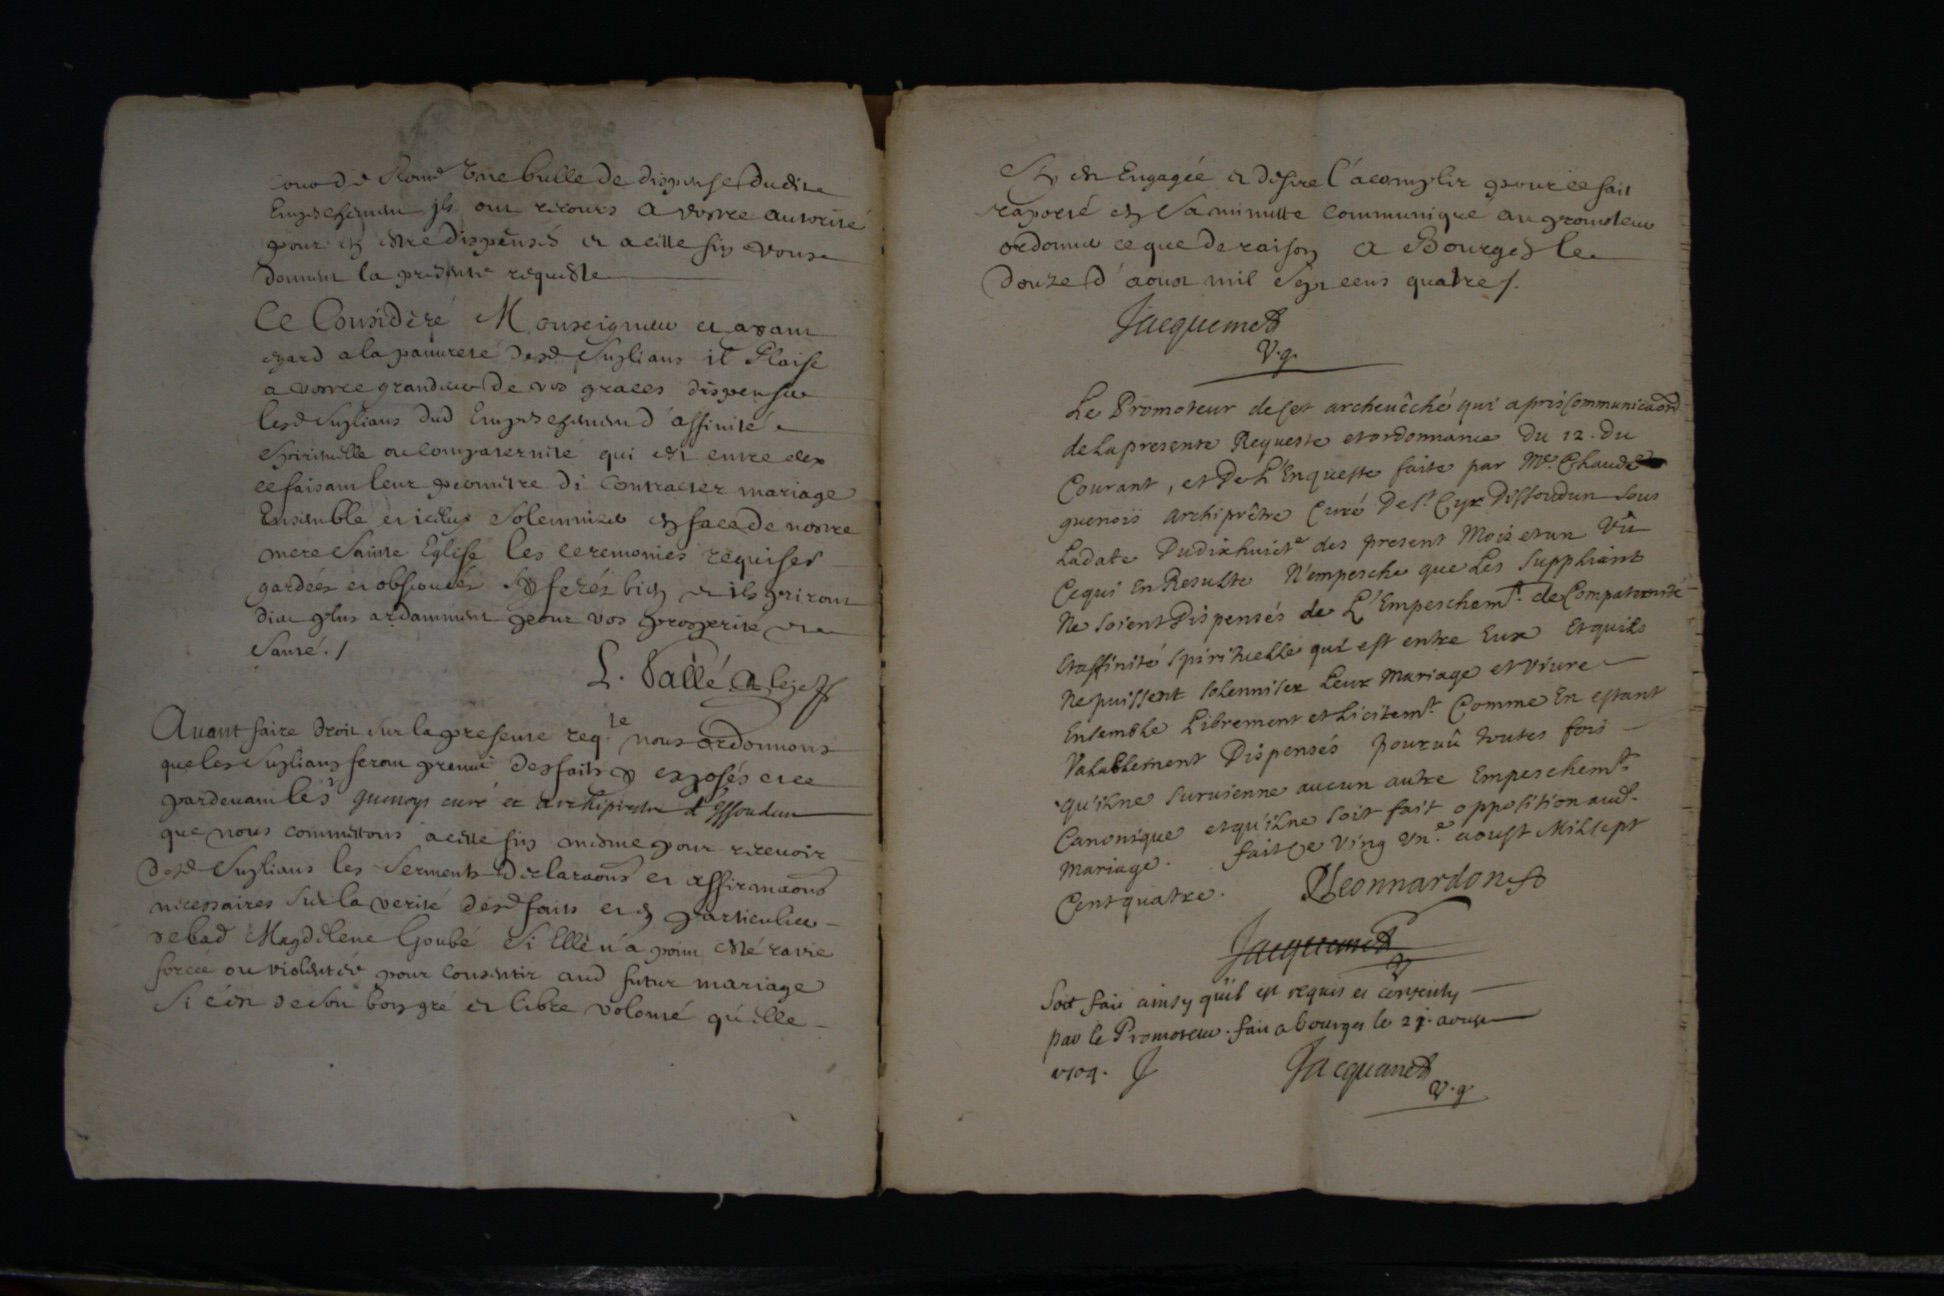 cour de Rome une bulle de dispense dudit
Empeschement ils ont recours a vostre autorité
pour en estre dispensés et a cette fin vous
donnent la presente requeste
Ce Considéré Monseigneur et ayant
egard a la pauvreté desd Suplians il Plaise
a vostre grandeur de vos graces dispenser
lesd Suplians dud Empeschement d'affinité
Spirituelle ou compaternité qui est entre eux
ce faisant leur permettre de contracter mariage
Ensemble et icelui Solemniser en face de nostre
mere Sainte Eglise les ceremonies requises
gardées et observées & ferés bien et ils priront
dieu plus ardamment pour vos prosperité et
Santé ./
L. Vallé
Avant faire droit sur la presente reqte nous ordonnons
que les Suplians feront preuve des faits y exposés et ce
pardevant le Sr quenoys curé et archiprestre d'Yssoudun
que nous commettons a cette fin mesme pour recevoir
desd Suplians les Serments declaraons et affirmaons
necessaires Sur la verité desd faits et en particulier
de lad Magdelene Goubé Si Elle n'a point esté ravie
forcée ou violentée pour consentir aud futur mariage
Si c'est de son bon gré et libre volonté qu'elle
S'y est Engagée et desire l'acomplir pour ce fait
raporté et Sa minutte communiqué au promoteur
ordonner ce que de raison a Bourges le
douze d'aoust mil Sept cens quatre /.
Jacquemet
v.g.
Le Promoteur de cet archeuêché qui apris Communicaon
de La presente Requeste et ordonnance du 12. du
Courant, et de L'Enqueste faite par Me. Chaude
quenois archiprêtre Curé de St. Cyr Dissoudun sous
La date Dudixhuicte des present Mois et an Vû
Cequi En Resulte N'empesche que Les Suppliant
Ne soient Dispensés de L'Empeschemt. de Compaternité
Et affinité spirituelle qui est entre Eux Et quils
Ne puissent solenniser Leur Mariage et viure
Ensemble Librement et Licitemt. Comme En estant
Valablement Dispensés pouruû toutes fois
qu'il ne suruienne aucun autre Empeschemt.
Canonique et qu'il ne soit fait opposition aud.
Mariage. fait ce Ving Vne. aoust Mil sept
Cent quatre. Leonnardon
Jacquemet
V
Soit fait ainsy qu'il est requis et consenty
par le Promoteur. fait a bourges le 21. aoust
1704. Jacquemet
v.g